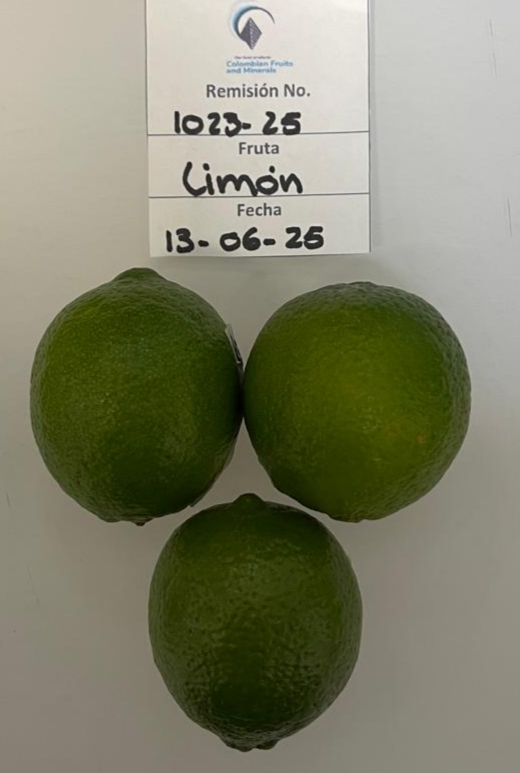 Colombian Fruits
and Minerals
Remisión No.
1023-25
Fruta
Limón
Fecha
13-06-25